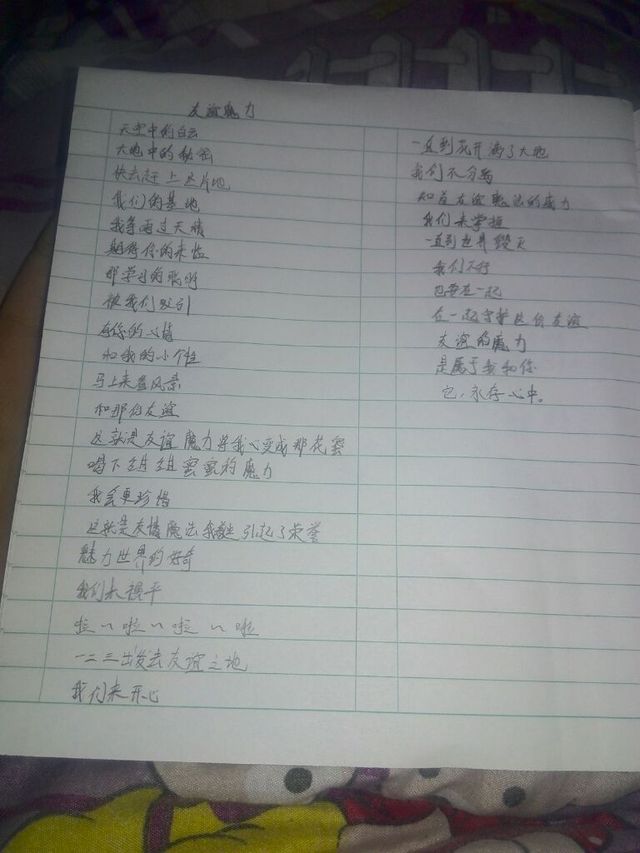 友谊魔力
天空中的白云
大地中的秘密
快去赶上这片地
我们的基地
我等雨过天晴
期待你的来临
那学习的聪明
被我们吸引
有你的心情
和我的小个性
马上来看风景
和那份友谊
这就是友谊魔力将我心变成那花蜜
喝下组组蜜蜜的魔力
我会更珍惜
这就是友情魔法我 引起了荣誉
魅力世界的好奇
我们来 平
啦~啦~啦~啦
一二三出发去友谊之地
我们来开心
一直到花开满了大地
我们不分离
知道友谊魔法的魔力
我们来掌握
一直到世界毁灭
我们不行
也要在一起
在一起守护这份友谊
友谊的魔力
是属于我和你
它，永存心中。